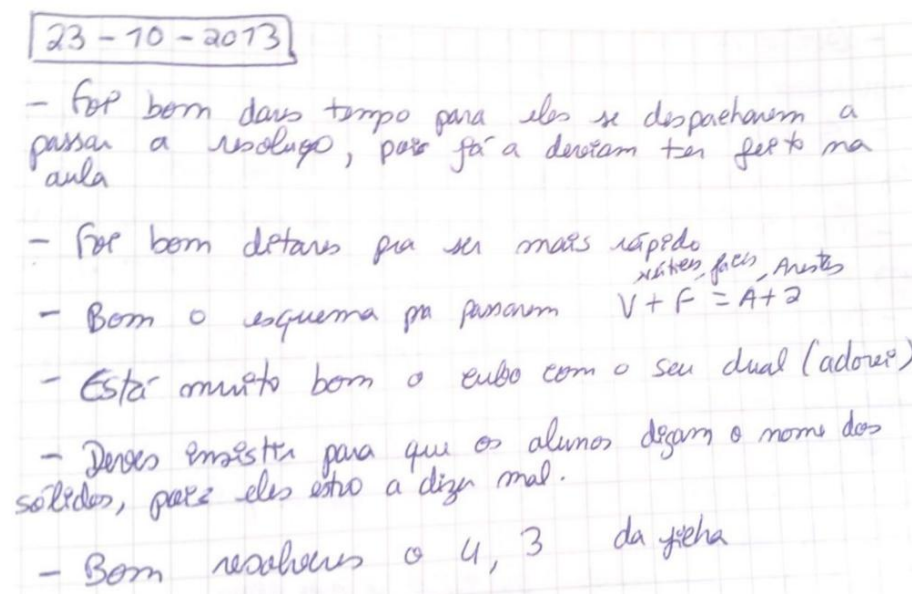 23-10-2013
- Foi bom dares tempo para eles se despacharem a
passar a resolução, pois já a deviam ter feito na
aula
- Foi bom ditares pra ser mais rápido
vértices, faces, Arestas
- Bom o esquema pra passarem V + F = A + 2
- Está muito bom o cubo com o seu dual (adorei)
- Deves insistir para que os alunos digam o nome dos
sólidos, pois eles estão a dizer mal.
- Bom resolveres o 4, 3 da ficha